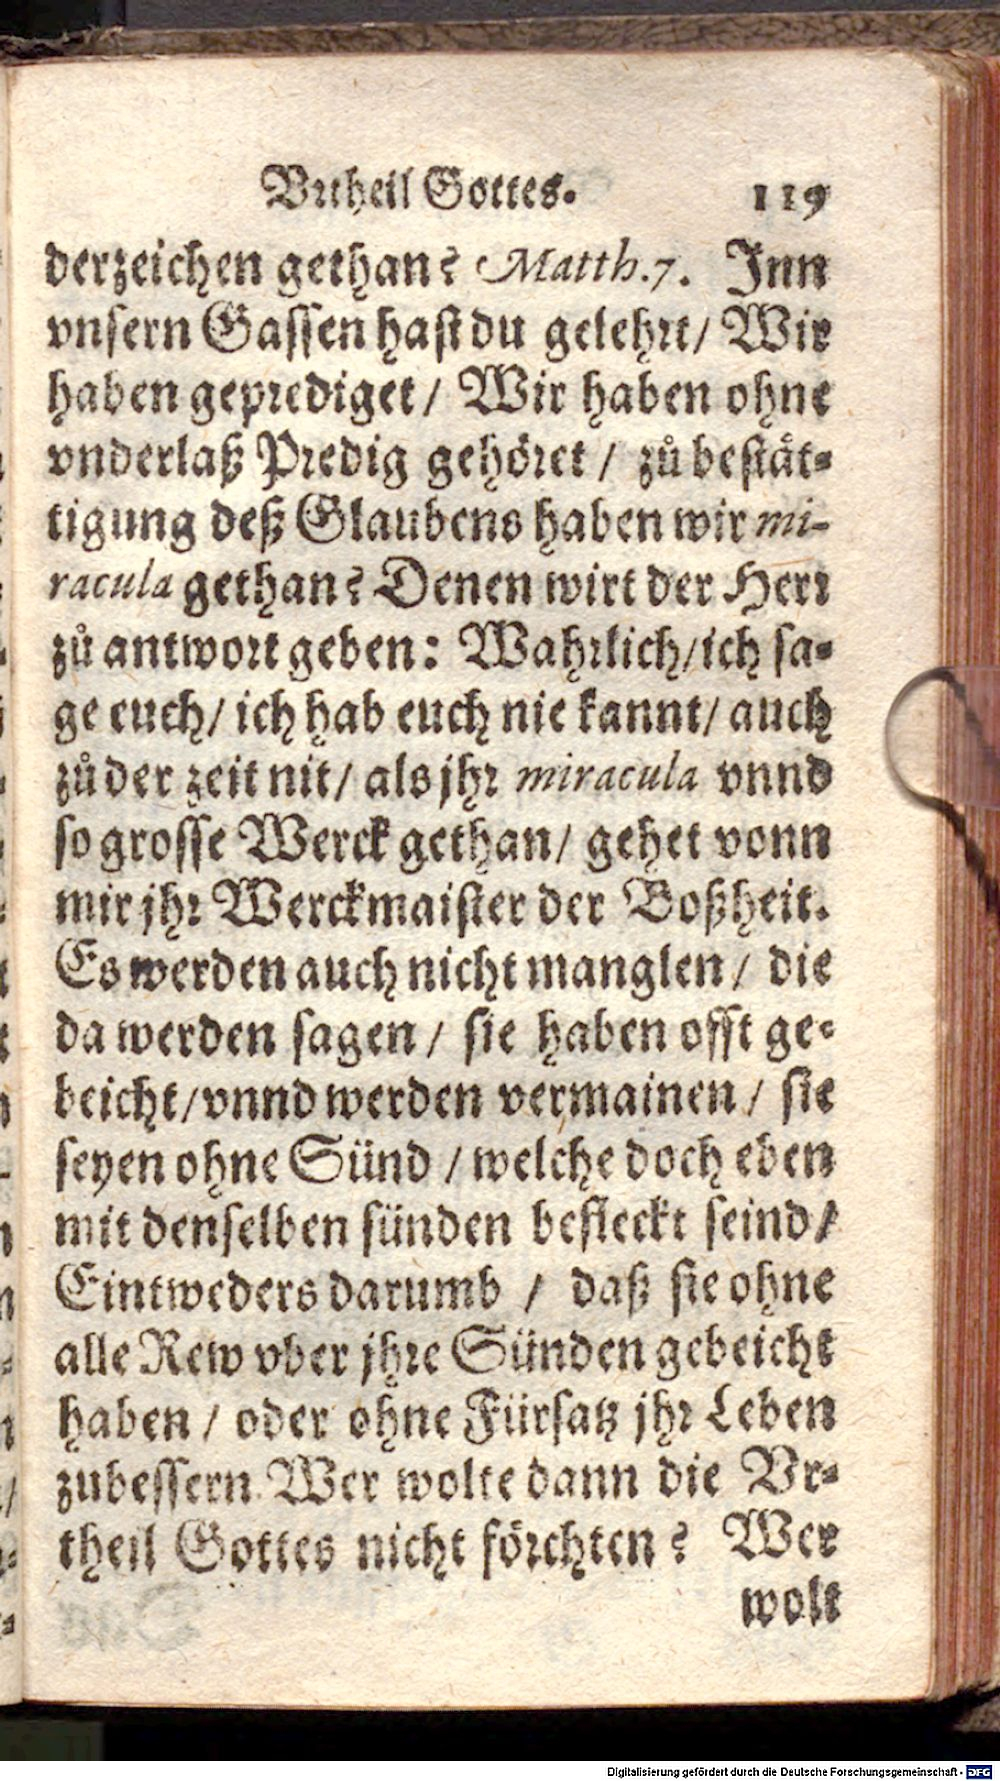 Vrtheil Gottes. 119
derzeichen gethan? Matth.7. Inn
vnsern Gassen hast du gelehrt/ Wir
haben geprediget/ Wir haben ohne
vnderlaß Predig gehöret / zů bestät-
tigung deß Glaubens haben wir mi-
racula gethan? Denen wirt der Herr
zů antwort geben: Wahrlich/ich sa-
ge euch/ ich hab euch nie kannt/ auch
zů der zeit nit/ als jhr miracula vnnd
so grosse Werck gethan/ gehet vonn
mir jhr Werckmaister der Boßheit.
Es werden auch nicht manglen/ die
da werden sagen/ sie haben offt ge-
beicht/vnnd werden vermainen/ sie
seyen ohne Sünd / welche doch eben
mit denselben sünden befleckt seind/
Eintweders darumb / daß sie ohne
alle Rew vber jhre Sünden gebeicht
haben / oder ohne Fürsatz jhr Leben
zubessern. Wer wolte dann die Vr-
theil Gottes nicht förchten? Wer
wolt
Digitalisierung gefördert durch die Deutsche Forschungsgemeinschaft - DFG